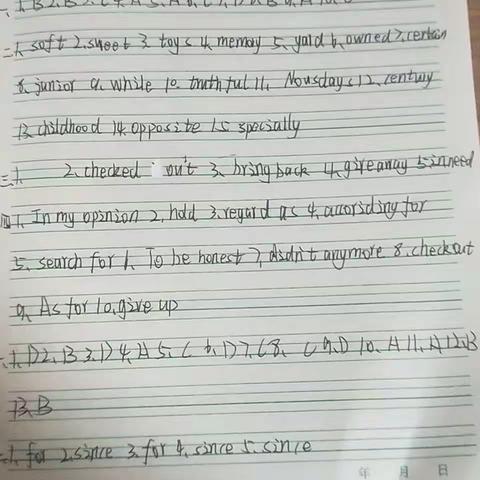 二、1. soft 2. sweet 3. toys 4. memory 5. yard 6. owned 7. certain
8. junior 9. while 10. truthful 11. Nousdays 12. century
13. childhood 14. opposite 15. specially
三、1. 2. checked out 3. bring back 4. give away 5. in need
四、1. In my opinion 2. hdd 3. regard as 4. accoriding for
5. search for 6. To be honest 7. disdn't anymore 8. check out
9. As for 10. give up
1. D 2. B 3. D 4. A 5. C 6. D 7. C 8. C 9. D 10. A 11. A 12. B
13. B
二、1. for 2. since 3. for 4. since 5. since
年 月 日